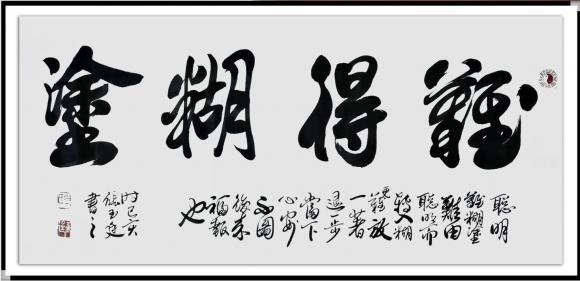 難得糊塗
聰明
難糊塗
難由
聰明而
轉入糊
更難放
一著
退一步
當下
心安
後來
福報
也
書之